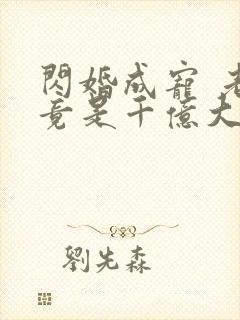 閃婚成寵 老
竟是千億大
劉先森